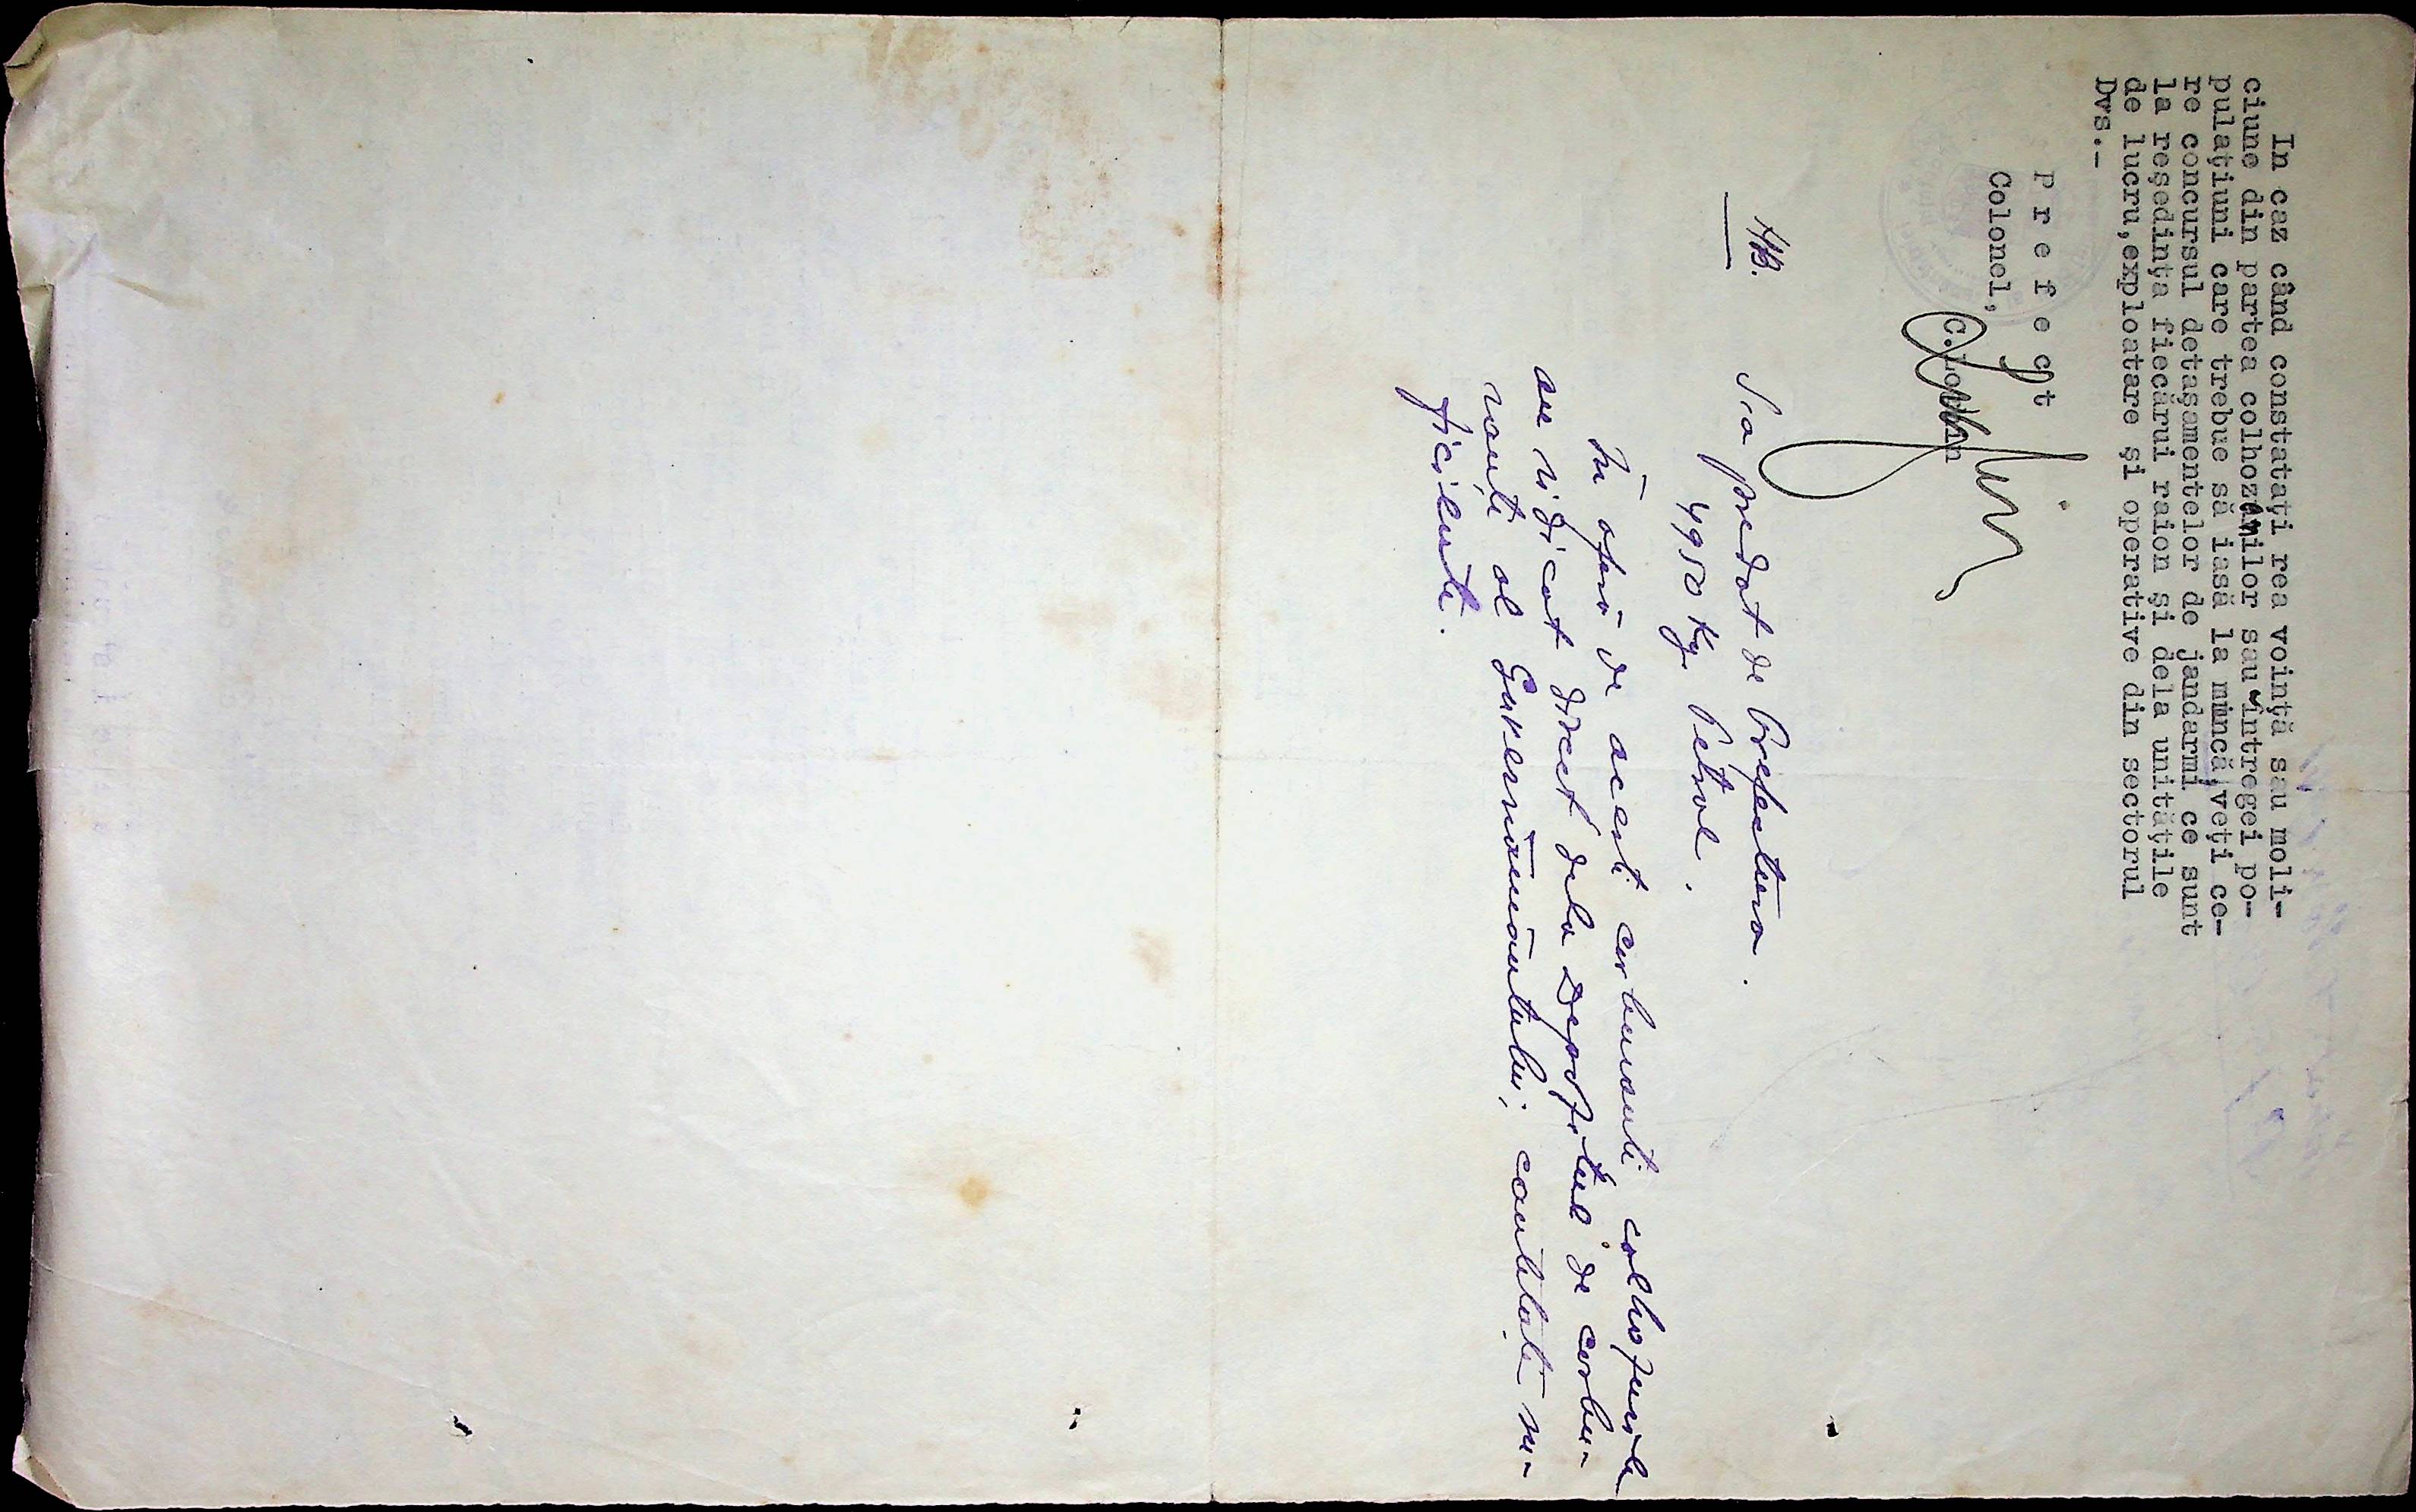 In caz când constataţi rea voinţă sau moli-
ciune din partea colhoznilor sau întregei po-
pulaţiuni care trebue să iasă la muncă, veţi ce-
re concursul detaşamentelor de jandarmi ce sunt
la reşedinţa fiecărui raion şi dela unităţile
de lucru, exploatare şi operative din sectorul
Dvs.-
P r e f e c t
Colonel,
C. Loghin
NB.
S'a predat de Prefectura.
4950 Kg. Petrol.
În afară de acești carburanți colhozurile
au ridicat direct dela Depozitul de carbu-
ranți al Guvernământului, cantități su-
ficiente.